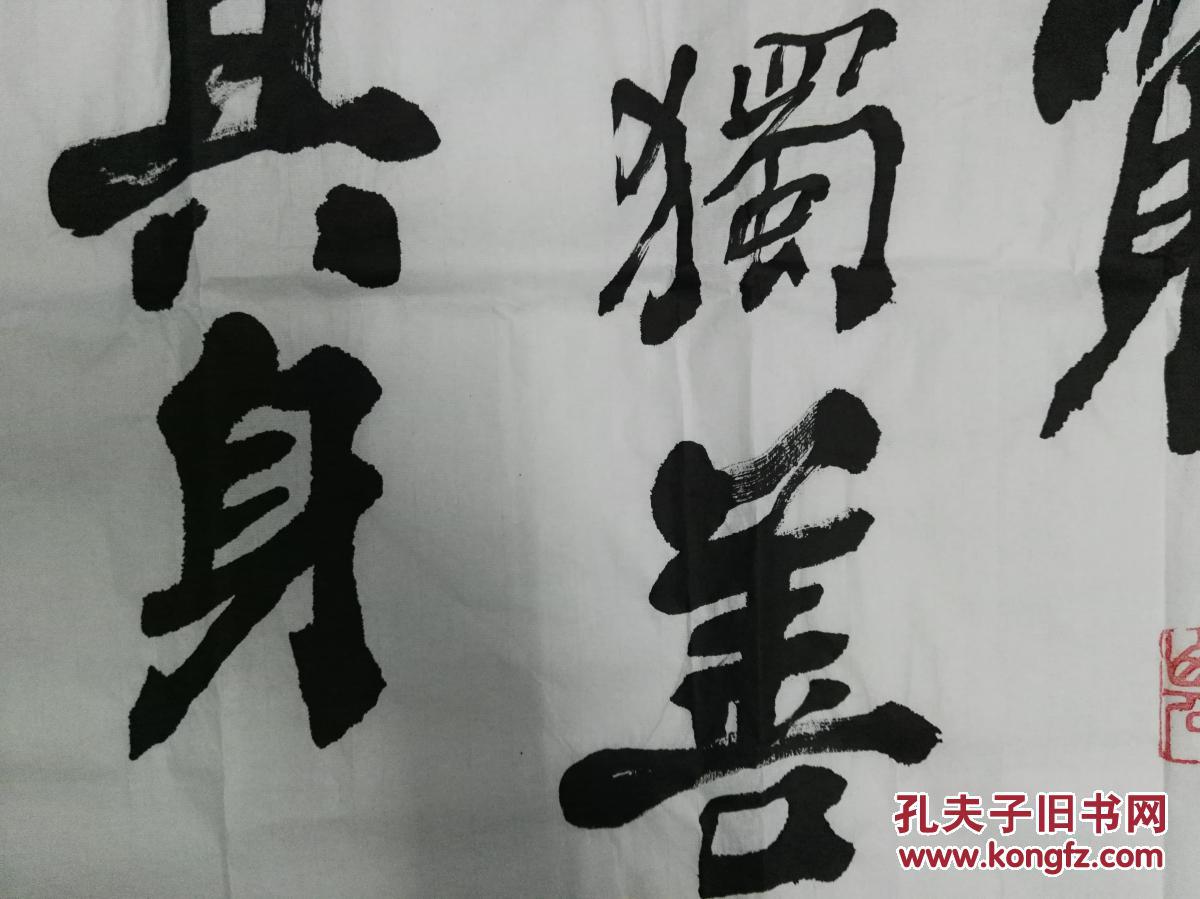 獨善
其身
孔夫子旧书网
www.kongfz.com